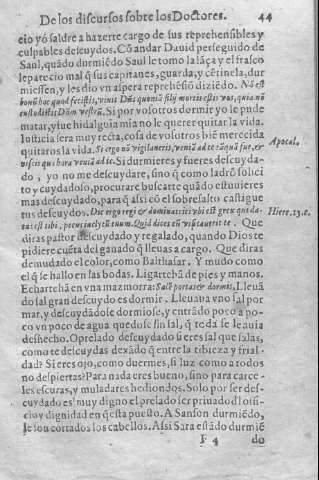 De los discursos sobre los Doctores. 44
cio yo saldre a hazerte cargo de sus reprehensibles y
culpables descuydos. Cõ andar Dauid perseguido de
Saul, quãdo durmiẽdo Saul le tomo la lãça y el frasco
le parecio mal q̃ sus capitanes, guarda, y cẽtinela, dur
miessen, y les dio vn aspera reprehẽsiõ diziẽdo. Nõ est
bonũ hoc quod fecistis, viuit Dñs quoniã filij mortis estis vos, quia nõ
custodistis Dñm vestrũ. Si por vosotros dormir yo le pude
matar, y fue hidalguia mia no le querer quitar la vida.
Iusticia sera muy recta, cosa de vosotros biẽ merecida
quitaros la vida. Si ergo nõ vigilaueris, veniã ad te tãquã fur, et
nescis qua hora veniã ad te. Si durmieres y fueres descuyda-
do, yo no me descuydare, sino q̃ como ladrõ solici
to y cuydadoso, procurare buscarte quãdo estuuieres
mas descuydado, para q̃ assi cõ el sobresalto castigue
tus descuydos. Dic ergo regi et dominatrici vbi est grex qui da-
tus est tibi, pecus inclytũ tuum. Quid dices cũ visitauerit te. Que
diras pastor descuydado y regalado, quando Dios te
pidiere cuẽta del ganado q̃ lleuas a cargo. Que diras
demudado el color, como Balthasar. Y mudo como
el q̃ se hallo en las bodas. Ligartehã de pies y manos.
Echartehã en vna mazmorra: Saluẽ portas et dormis, Lleuã
do sal gran descuydo es dormir. Lleuaua vno sal por
mar, y descuydãdose dormiose, y entrãdo poco a po-
co vn poco de agua quedose sin sal, q̃ toda se le auia
deshecho. O prelado descuydado si eres sal que salas,
como te descuydas dexãdo q̃ entre la tibieza y frial
dad? Si eres ojo, como duermes, si luz como a todos
no despiertas? Para nada eres bueno, sino para carce-
les escuras, y muladares hediondos. Solo por ser des-
cuydado es muy digno el prelado ser priuado d'l offi-
cio y dignidad en q̃ esta puesto. A Sanson durmiẽdo,
le son cortados los cabellos. Assi Sara estãdo durmiẽ
F 4 do
Apocal.
Hiere. 13. c.